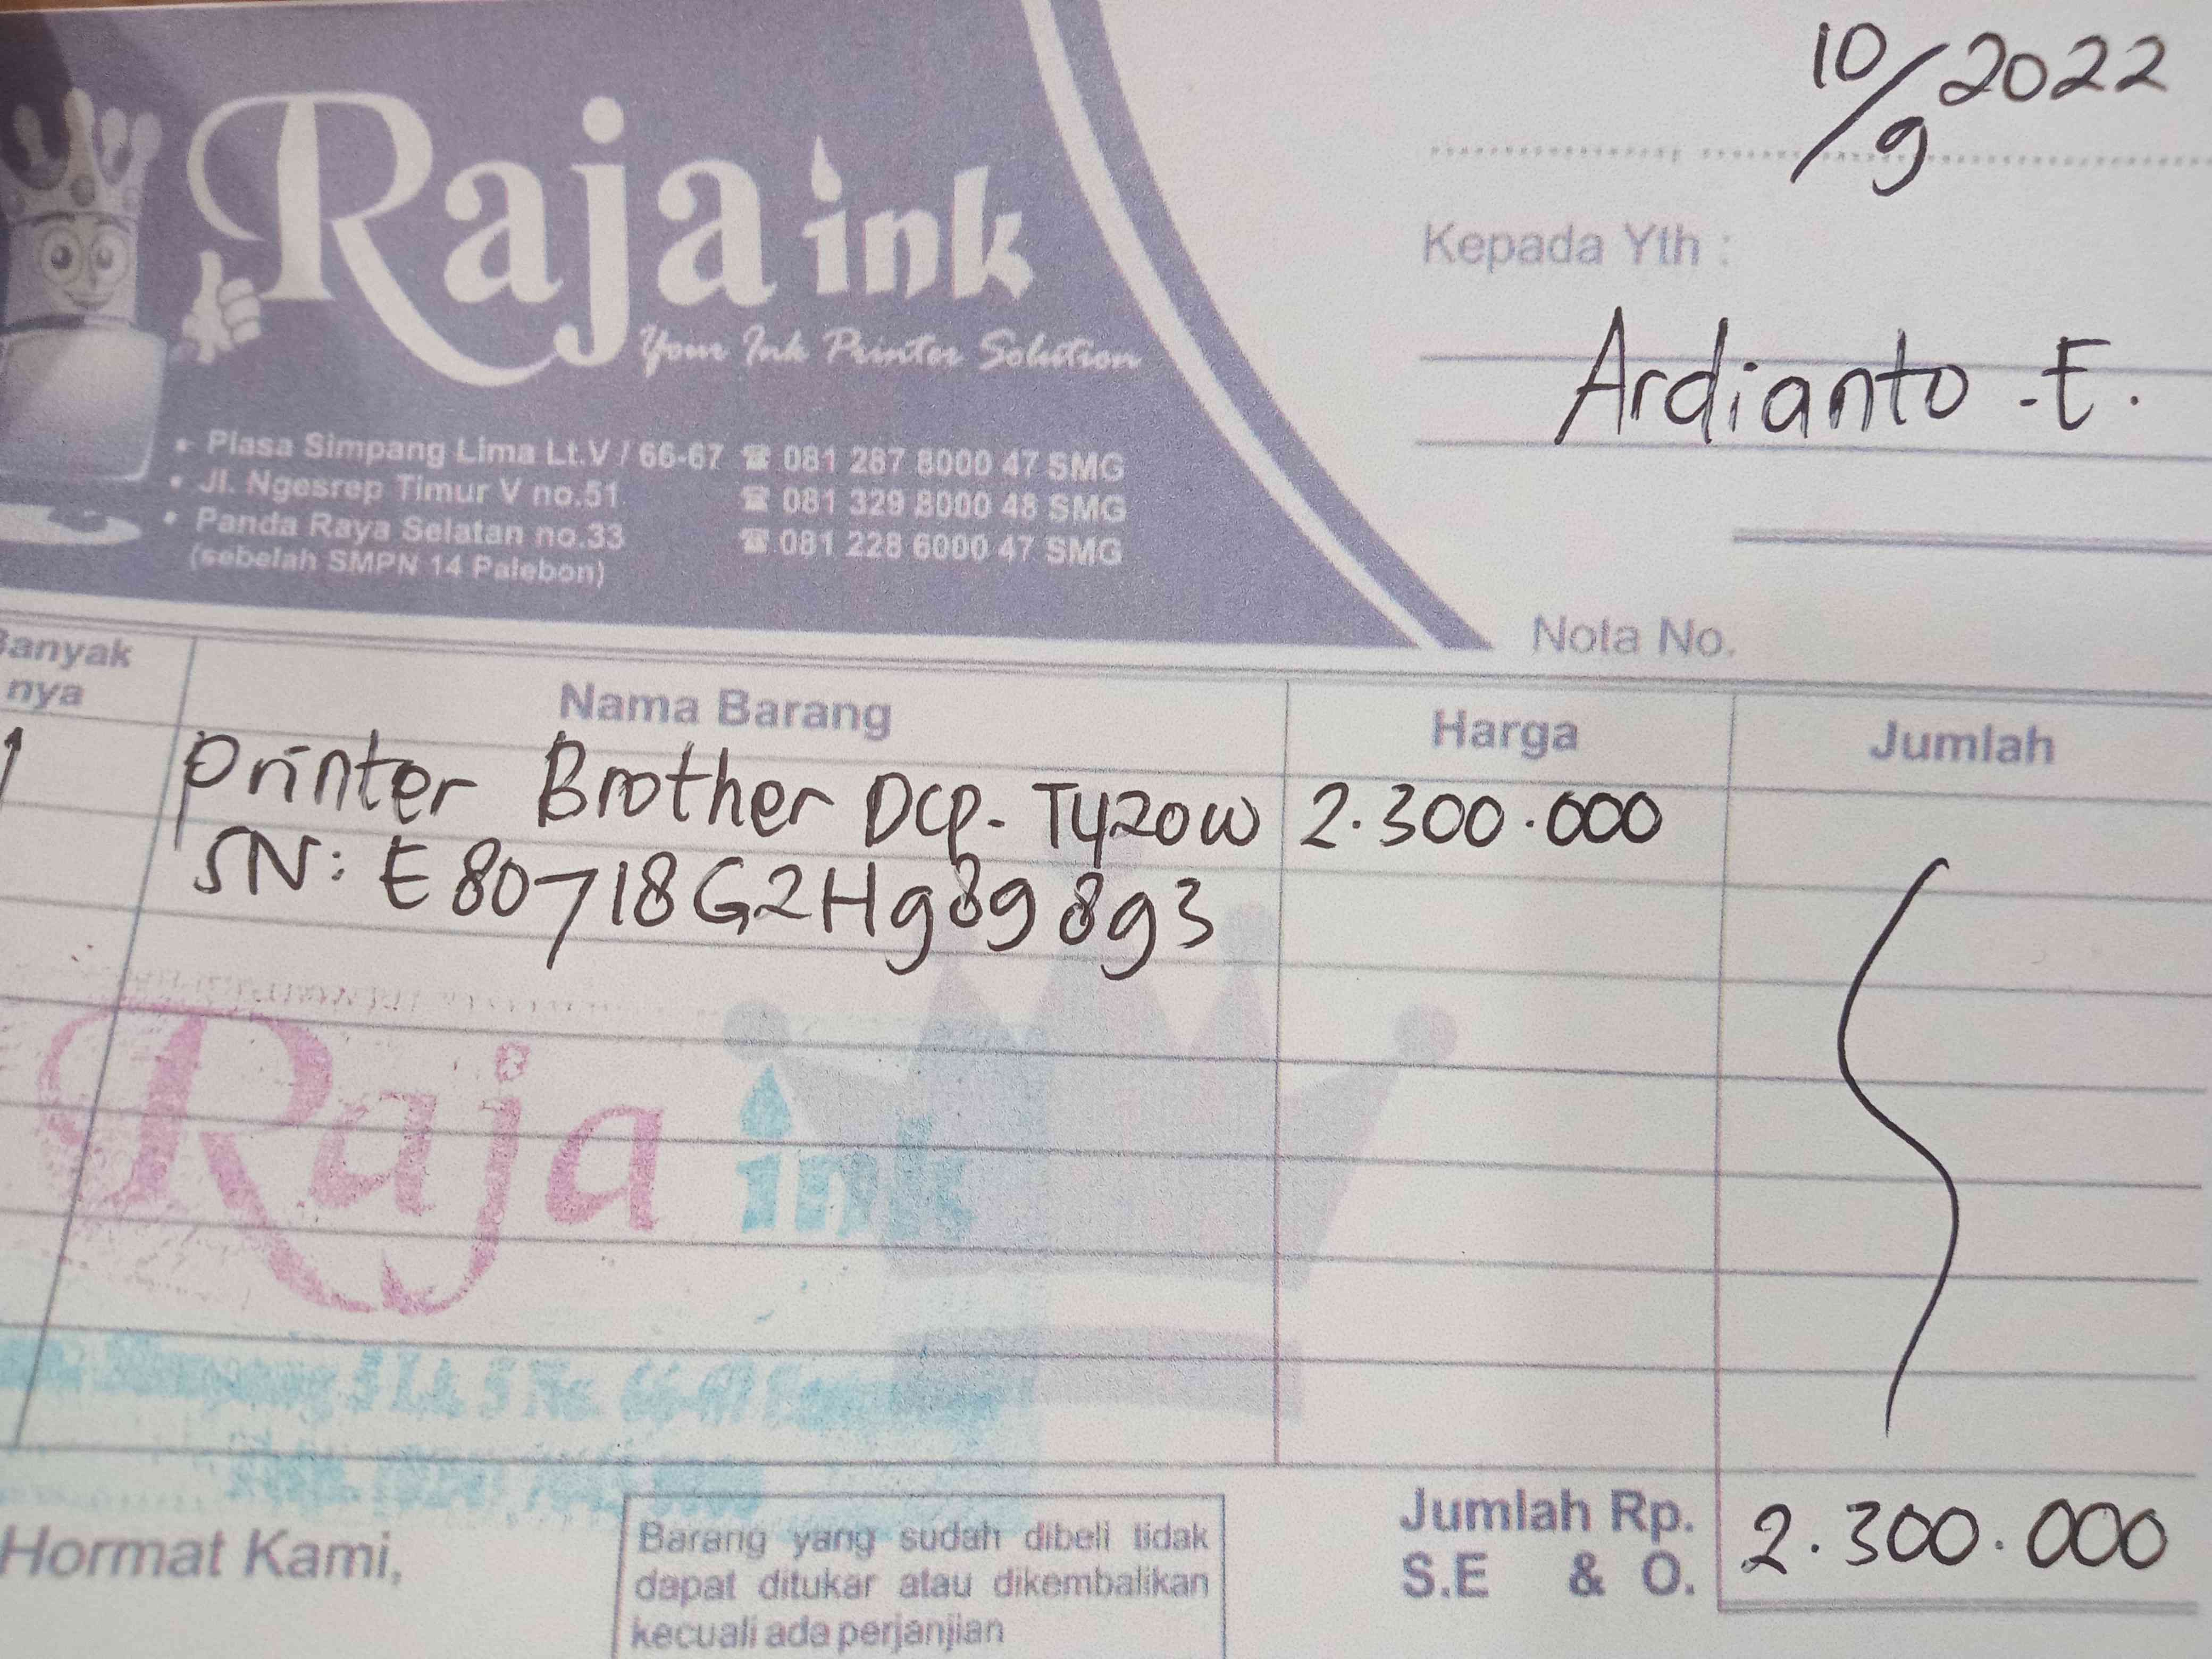 10/9 2022
Raja ink
Your Ink Printer Solution
Kepada Yth :
Ardianto . E.
• Plasa Simpang Lima Lt.V / 66-67 ☎ 081 287 8000 47 SMG
• Jl. Ngesrep Timur V no.51 ☎ 081 329 8000 48 SMG
• Panda Raya Selatan no.33 ☎ 081 228 6000 47 SMG
(sebelah SMPN 14 Palebon)
Nota No.
Banyak nya Nama Barang Harga Jumlah
1 Printer Brother DCP-T420W 2.300.000
SN: E80718G2H989893
Raja ink
Jumlah Rp. 2.300.000
S.E & O.
Hormat Kami,
Barang yang sudah dibeli tidak
dapat ditukar atau dikembalikan
kecuali ada perjanjian